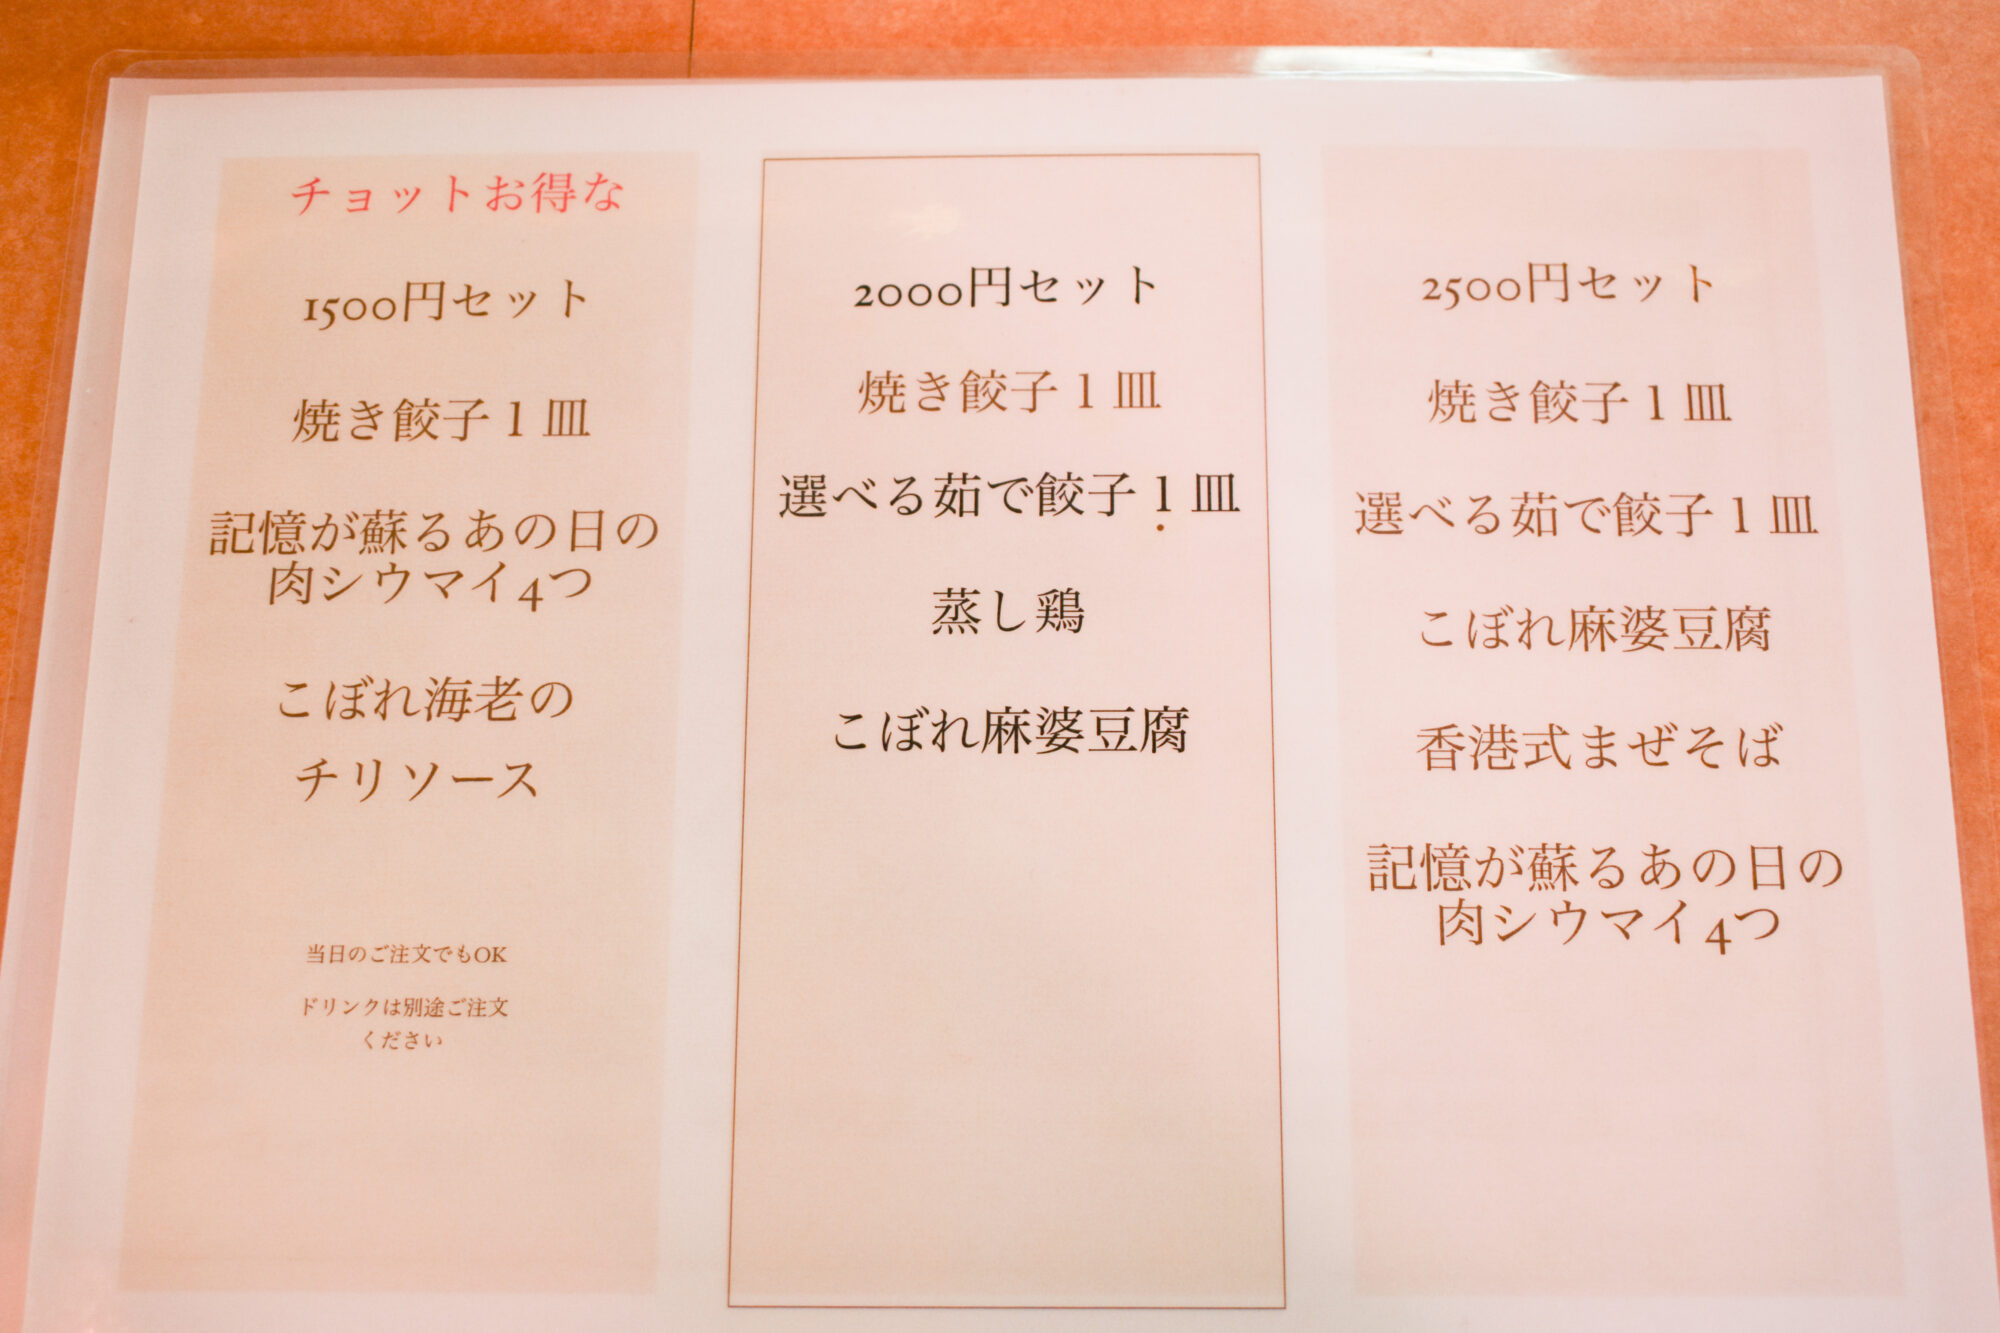 チョットお得な
1500円セット
焼き餃子1皿
記憶が蘇るあの日の
肉シウマイ4つ
こぼれ海老の
チリソース
当日のご注文でもOK
ドリンクは別途ご注文
ください
2000円セット
焼き餃子1皿
選べる茹で餃子1皿
蒸し鶏
こぼれ麻婆豆腐
2500円セット
焼き餃子1皿
選べる茹で餃子1皿
こぼれ麻婆豆腐
香港式まぜそば
記憶が蘇るあの日の
肉シウマイ4つ